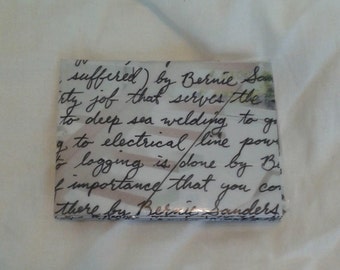 suffered) by Bernie San
rty job that serves the
to deep sea welding to g
g to electrical line pow
logging is done by B
importance that you co
there by Bernie Sanders